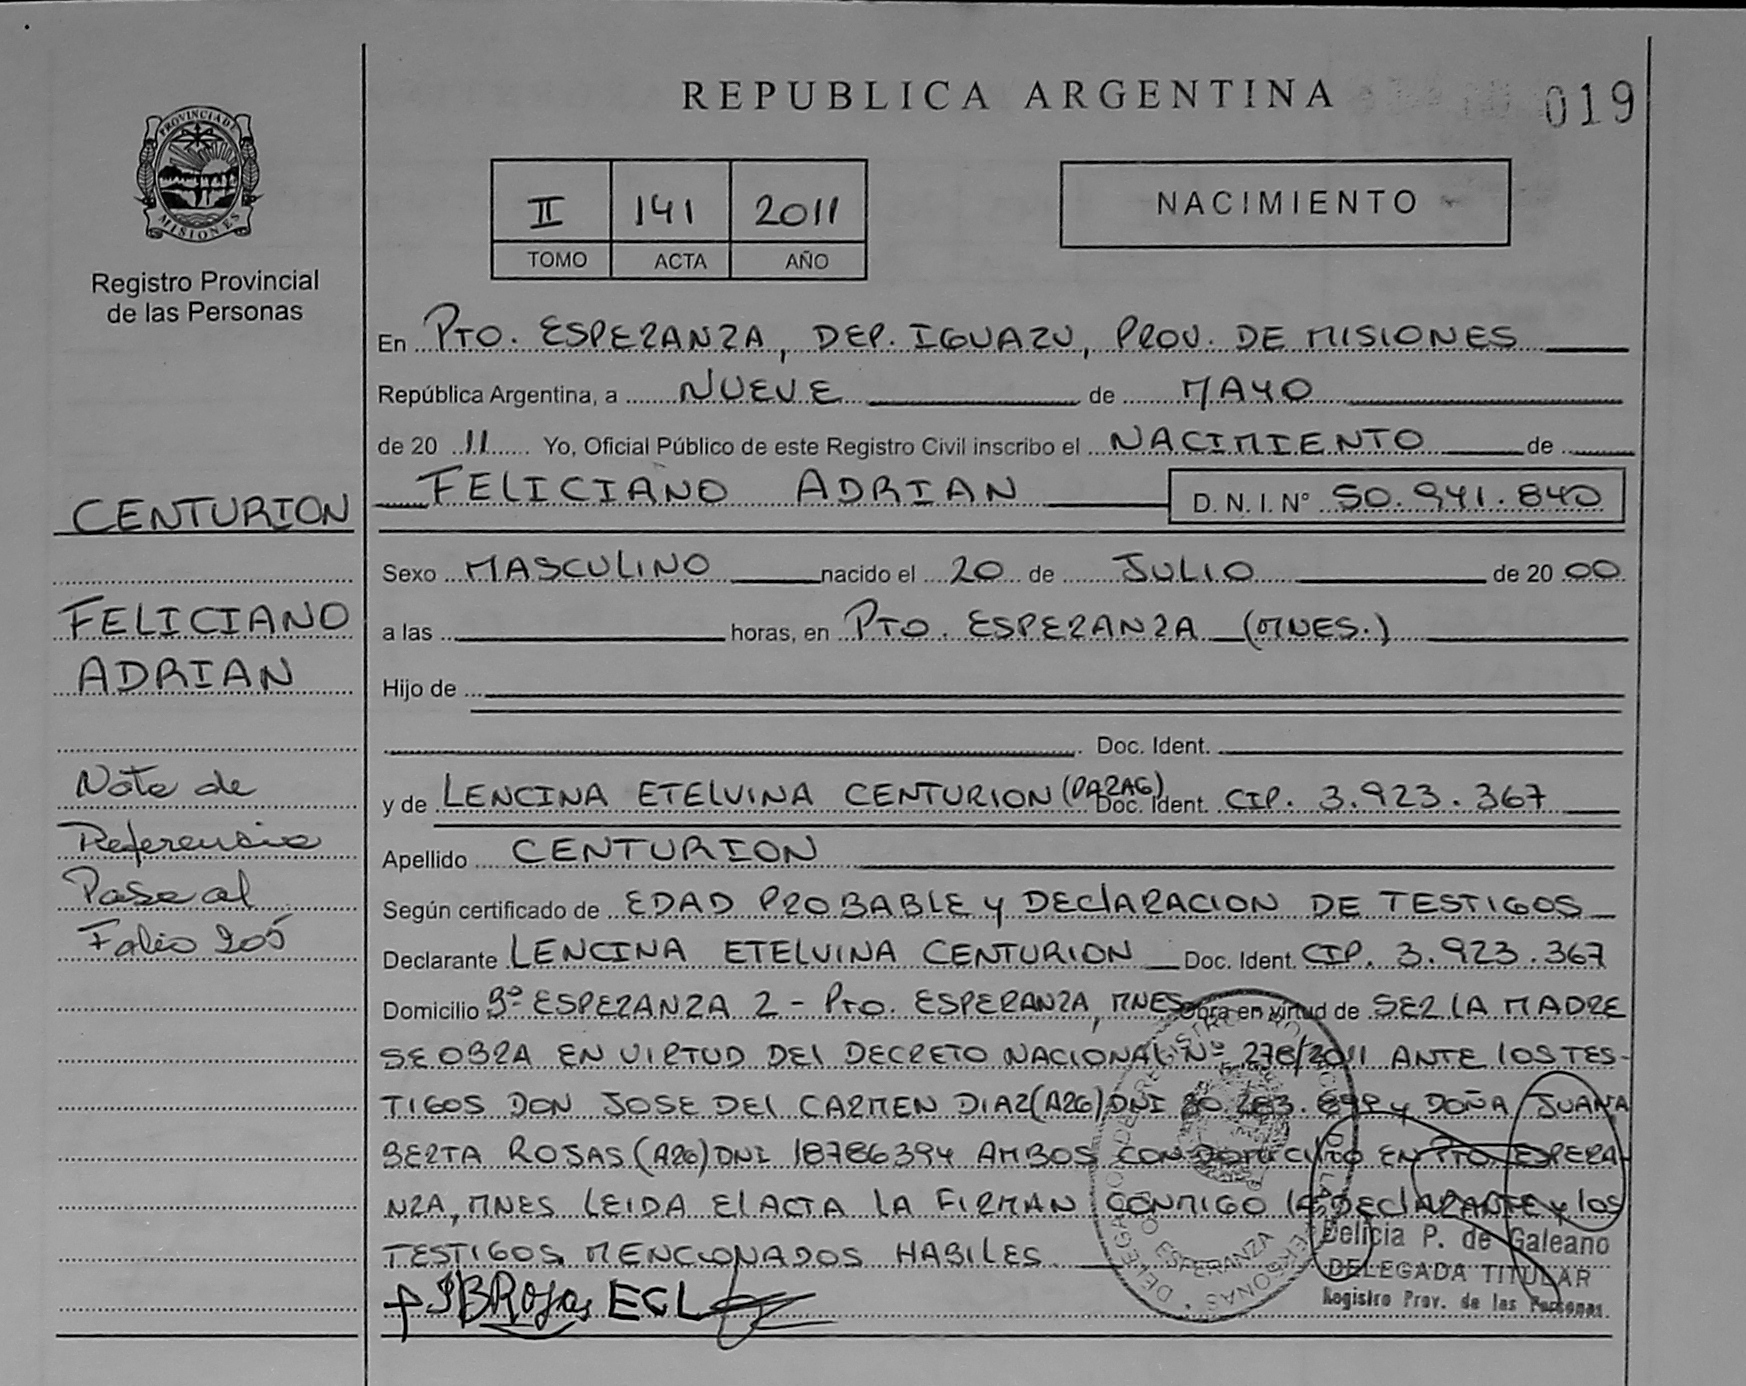 REPUBLICA ARGENTINA
019
PROVINCIA DE
MISIONES
Registro Provincial
de las Personas
II 141 2011
TOMO ACTA AÑO
NACIMIENTO
En PTO. ESPERANZA, DEP. IGUAZU, PROV. DE MISIONES
República Argentina, a NUEVE de MAYO
de 20 11 Yo, Oficial Público de este Registro Civil inscribo el NACIMIENTO de
FELICIANO ADRIAN D. N. I. N° 50.941.840
Sexo MASCULINO nacido el 20 de JULIO de 20 00
a las horas, en PTO. ESPERANZA (MNES.)
Hijo de
Doc. Ident.
y de LENCINA ETELVINA CENTURION (PARAG) Doc. Ident. CIP. 3.923.367
Apellido CENTURION
Según certificado de EDAD PROBABLE Y DECLARACION DE TESTIGOS
Declarante LENCINA ETELVINA CENTURION Doc. Ident. CIP. 3.923.367
Domicilio Bº ESPERANZA 2 - PTO. ESPERANZA, MNES Obra en virtud de SER LA MADRE
SE OBRA EN VIRTUD DEL DECRETO NACIONAL Nº 278/2011 ANTE LOS TES-
TIGOS DON JOSE DEL CARMEN DIAZ (ARG) DNI Y DOÑA JUANA
BERTA ROSAS (ARG) DNI 18786394 AMBOS CON DOMICILIO EN PTO. ESPERA-
NZA, MNES LEIDA EL ACTA LA FIRMAN CONMIGO LA DECLARANTE Y LOS
TESTIGOS MENCIONADOS HABILES
JBRojas ECL
Delicia P. de Galeano
DELEGADA TITULAR
Registro Prov. de las Personas
CENTURION
FELICIANO
ADRIAN
Nota de
Referencia
Pase al
Folio 205